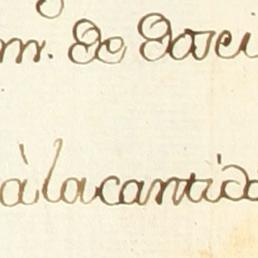 m. de dosci
à la cantida